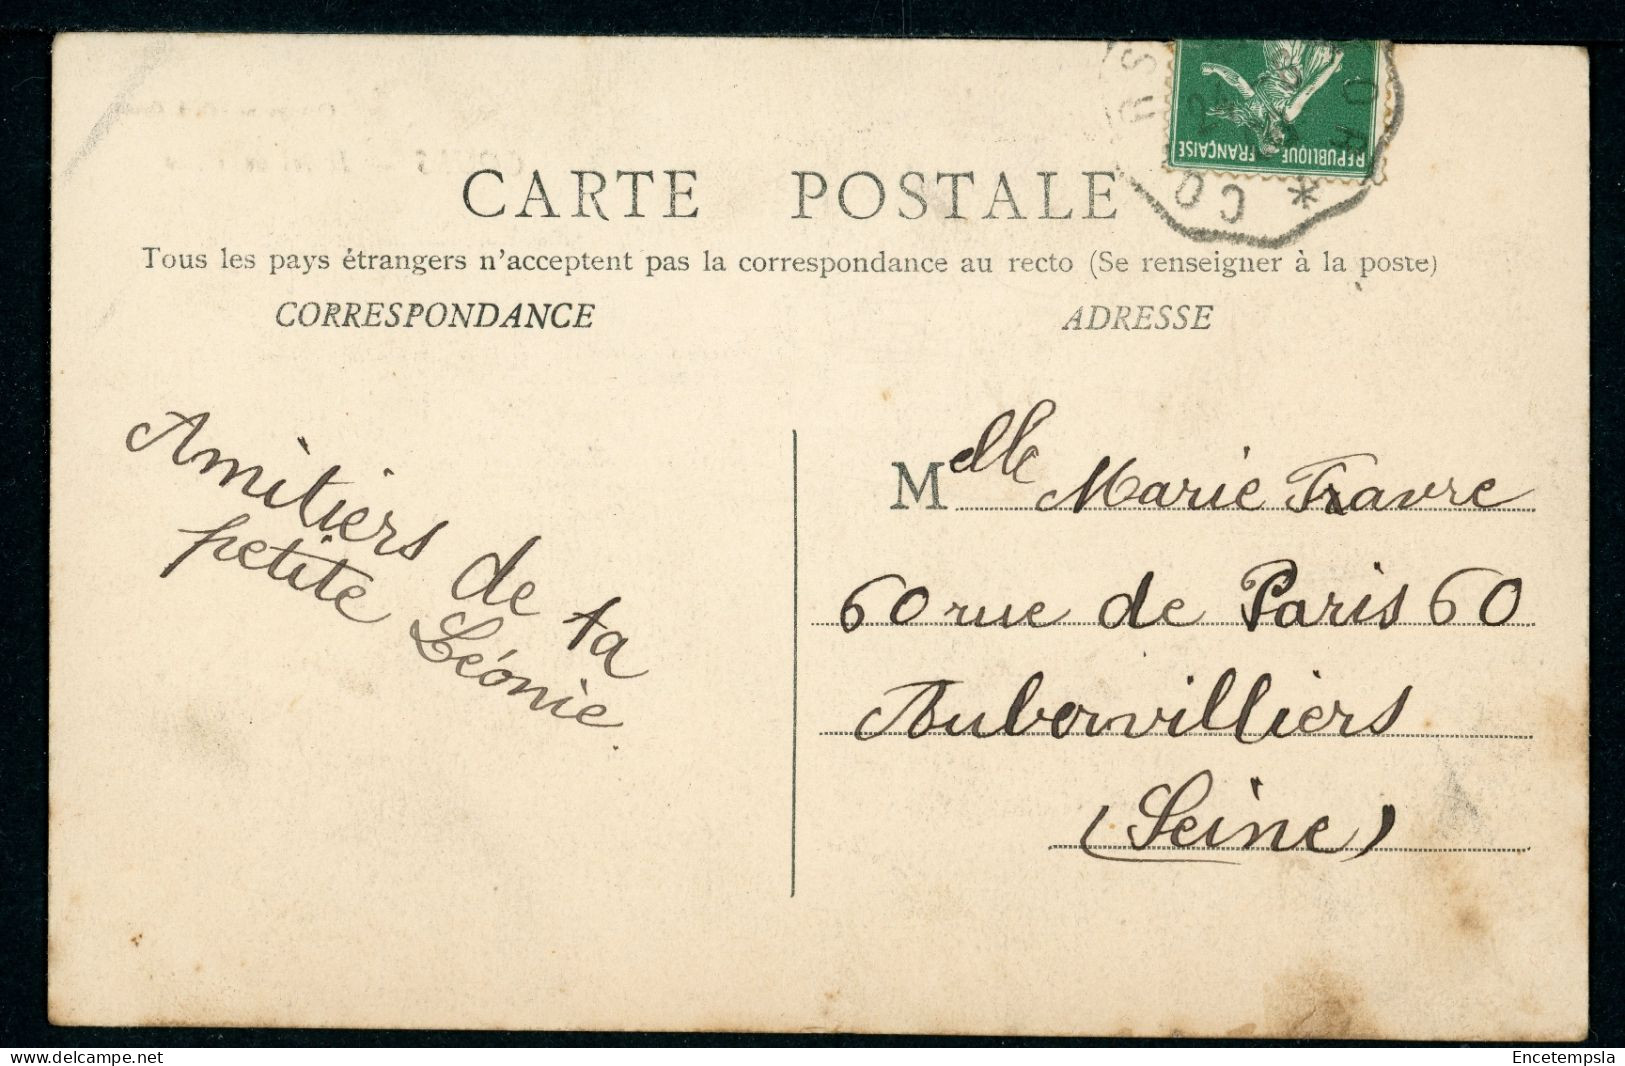 CARTE POSTALE
Tous les pays étrangers n'acceptent pas la correspondance au recto (Se renseigner à la poste)
CORRESPONDANCE
ADRESSE
REPUBLIQUE FRANÇAISE
Amitiers de ta
petite Léonie.
Melle Marie Travre
60 rue de Paris 60
Aubervilliers
(Seine)
delcampe.net
Encetempsla